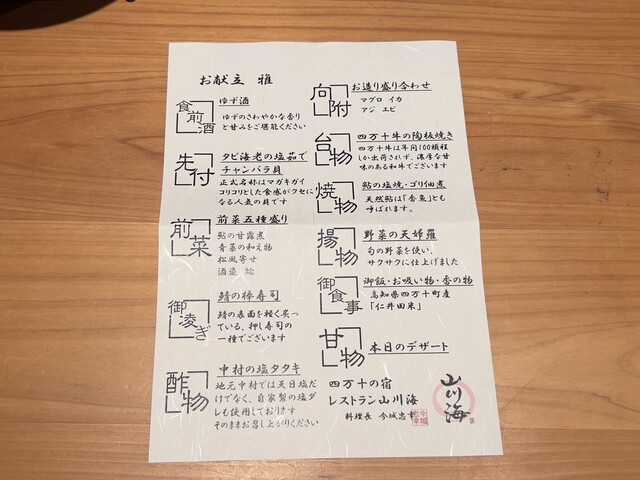 お献立 雅
食前酒
ゆず酒
ゆずのさわやかな香り
と甘みをご堪能ください
先付
タビ海老の塩茹で
チャンバラ貝
正式名称はマガキガイ
コリコリとした食感がクセに
なる人気の貝です
前菜
前菜五種盛り
鮎の甘露煮
青菜の和え物
松風寄せ
酒盗
御凌ぎ
鯖の棒寿司
鯖の表面を軽く炙っ
ている、押し寿司の
一種でございます
酢物
中村の塩タタキ
地元中村では天日塩だ
けでなく、自家製の塩ダ
レも使用しております
そのままお召し上がりください
向付
お造り盛り合わせ
マグロ イカ
アジ エビ
台物
四万十牛の陶板焼き
四万十牛は年間100頭程
しか出荷されず、濃厚な甘
味のある和牛でございます
焼物
鮎の塩焼・ゴリ佃煮
天然鮎は「香魚」とも
呼ばれます。
揚物
野菜の天婦羅
旬の野菜を使い、
サクサクに仕上げました
御食事
御飯・お吸い物・香の物
高知県四万十町産
「仁井田米」
甘物
本日のデザート
四万十の宿
レストラン山川海
料理長 今城忠幸
山川海